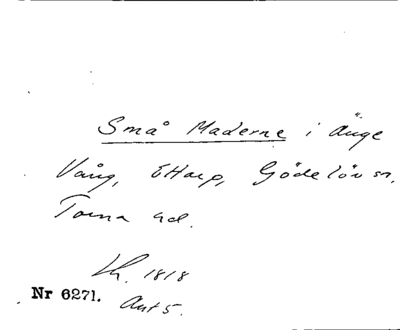 Små Maderne i Änge
Vång, Ettarp, Gödelöv sn,
Torna hd.
Lh. 1818
Nr 6271.
Akt 5.